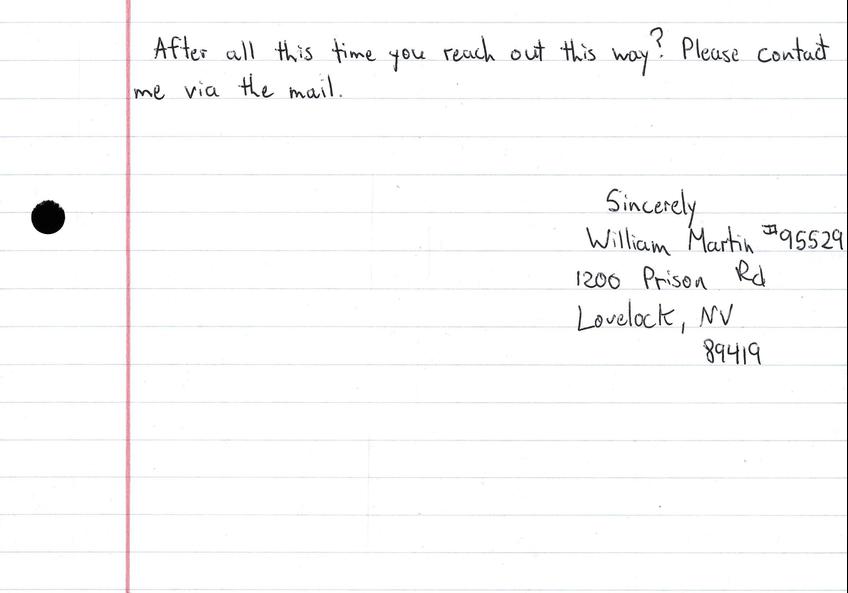 After all this time you reach out this way? Please contact
me via the mail.
Sincerely
William Martin #95529
1200 Prison Rd
Lovelock, NV
89419